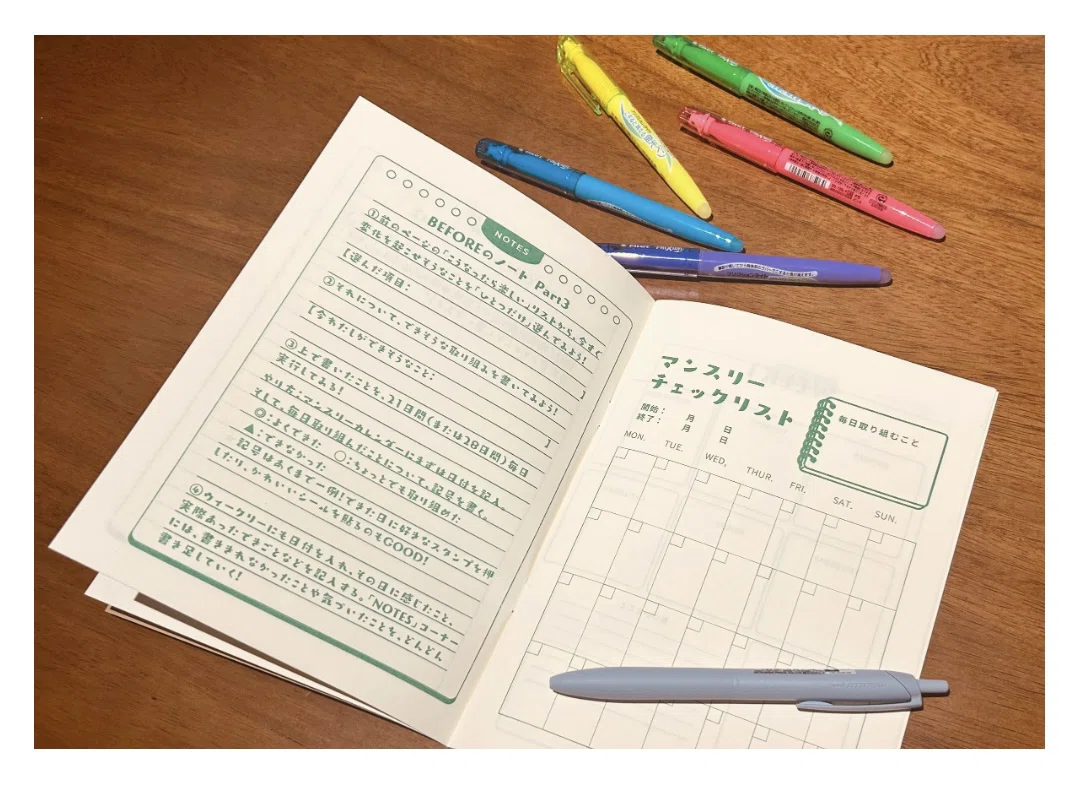 NOTES
BEFOREのノート Part3
①前のページの「こうなったら楽しい」リストから、今すぐ
変化を起こせそうなことを「ひとつだけ」選んでみよう!
[選んだ項目: ]
②それについて、できそうな取り組みを書いてみよう!
[今わたしができそうなこと: ]
③上で書いたことを、21日間(または28日間)毎日
実行してみる!
やり方:マンスリーカレンダーにまずは日付を記入。
そして、毎日取り組んだことについて、記号を書く。
◎:よくできた ○:ちょっとでも取り組めた
▲:できなかった
記号はあくまで一例!できた日に好きなスタンプを押
したり、かわいいシールを貼るのもGOOD!
④ウィークリーにも日付を入れ、その日に感じたこと、
実際あったできごとなどを記入する。「NOTES」コーナー
には、書ききれなかったことや気づいたことを、どんどん
書き足していく!
マンスリー
チェックリスト
開始: 月 日
終了: 月 日
毎日取り組むこと
MON. TUE. WED. THUR. FRI. SAT. SUN.